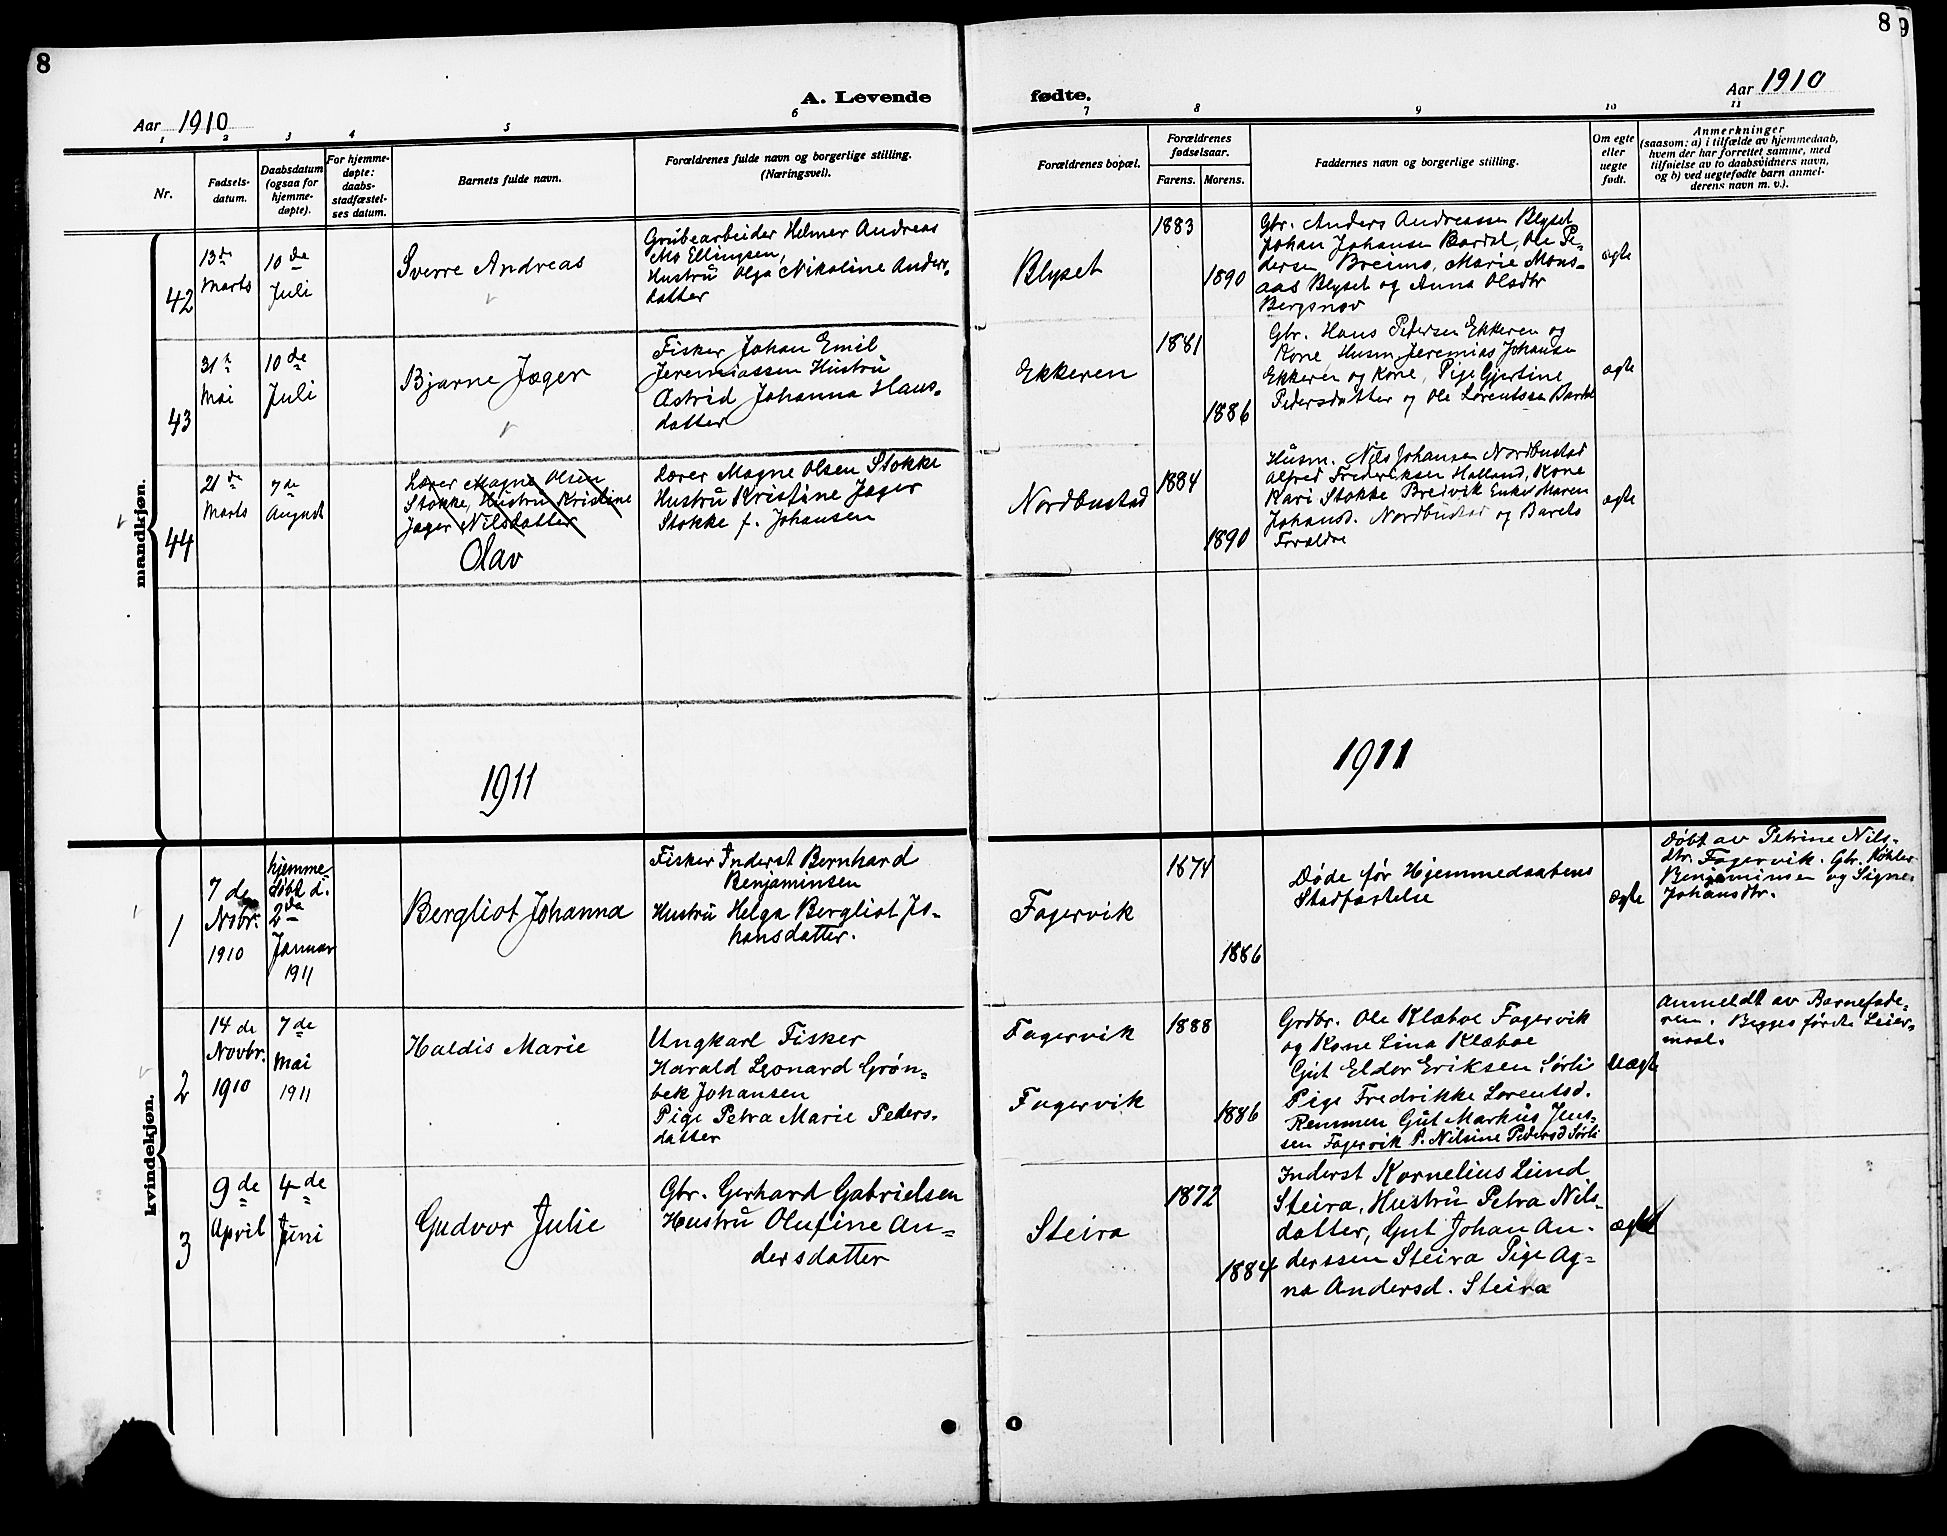 8
8
9
Aar 1910
A. Levende
fødte.
Aar 1910
1 2 3 4 5 6 7 8 9 10 11
Nr.
Fødsels-
datum.
Daabsdatum
(ogsaa for
hjemme-
døpte).
For hjemme-
døpte:
daabs-
stadfæstel-
ses datum.
Barnets fulde navn.
Forældrenes fulde navn og borgerlige stilling.
(Næringsvei).
Forældrenes bopæl.
Forældrenes
fødselsaar.
Farens. Morens.
Faddernes navn og borgerlige stilling.
Om egte
eller
uegte
født.
Anmerkninger
(saasom: a) i tilfælde av hjemmedaab,
hvem der har forrettet samme, med
tilføielse av to daabsvidners navn,
og b) ved uegtefødte barn anmel-
derens navn m. v.).
mandkjøn.
42
13de
Marts
10de
Juli
Sverre Andreas
Grubearbeider Helmer Andreas
Mo Ellingsen,
Hustru Olga Nikoline Anders-
datter
Blyset
1883
1890
Gbr. Anders Andreassen Blyset
Johan Johansen Bardal, Ole Pe-
dersen Breimo, Marie Mons-
aas Blyset og Anna Olsdtr
Bergsnov
ægte
43
31te
Mai
10de
Juli
Bjarne Jæger
Fisker Johan Emil
Jeremiassen Hustru
Astrid Johanna Hans-
datter
Ekkeren
1881
1886
Gbr. Hans Pedersen Ekkeren og
Kone Husm. Jeremias Johansen
Ekkeren og Kone, Pige Gjertine
Pedersdatter og Ole Lorentssen
ægte
44
21de
Marts
7de
August
Lærer Magne Olsen
Stokke, Hustru Kristine
Jæger Nilsdatter
Olav
Lærer Magne Olsen Stokke
Hustru Kristine Jæger
Stokke f. Johansen
Nordbustad
1884
1890
Husm. Nils Johansen Nordbustad
Alfred Fredriksen Halland, Kone
Kari Stokke Bredvik Enke Maren
Johansd. Nordbustad og Barnets
Forældre
ægte
1911
1911
kvindekjøn.
1
7de
Nobr.
1910
hjemme-
døbt d.
2da
Januar
1911
Bergliot Johanna
Fisker Inderst Bernhard
Benjaminsen
Hustru Helga Bergliot Jo-
hansdatter.
Fagervik
1874
1886
Døde før Hjemmedaabens
Stadfæstelse
ægte
Døbt av Petrine Nils-
dtr. Fagervik. Gbr. Køhler
Benjaminsen og Signe
Johansdtr.
2
14de
Novbr.
1910
7de
Mai
1911
Haldis Marie
Ungkarl Fisker
Harald Leonard Grøn-
bek Johansen
Pige Petra Marie Peders-
datter
Fagervik
Fagervik
1888
1886
Grdbr. Ole Klæboe Fagervik
og Kone Lina Klæboe
Gut Eldor Eriksen Sørli
Pige Fredrikke Lorentsd.
Remmen Gut Markus Jens-
sen Fagervik P. Nilsine Pedersd Sørli
Uægte
Anmeldt av Barnefade-
ren. Begges første Leier-
maal.
3
9de
April
4de
Juni
Gudvor Julie
Gbr. Gerhard Gabrielsen
Hustru Olufine An-
dersdatter
Steira
1872
1884
Inderst Kornelius Lund
Steira, Hustru Petra Nils-
datter, Gut Johan An-
derssen Steira Pige Ag-
na Andersd. Steira
ægte